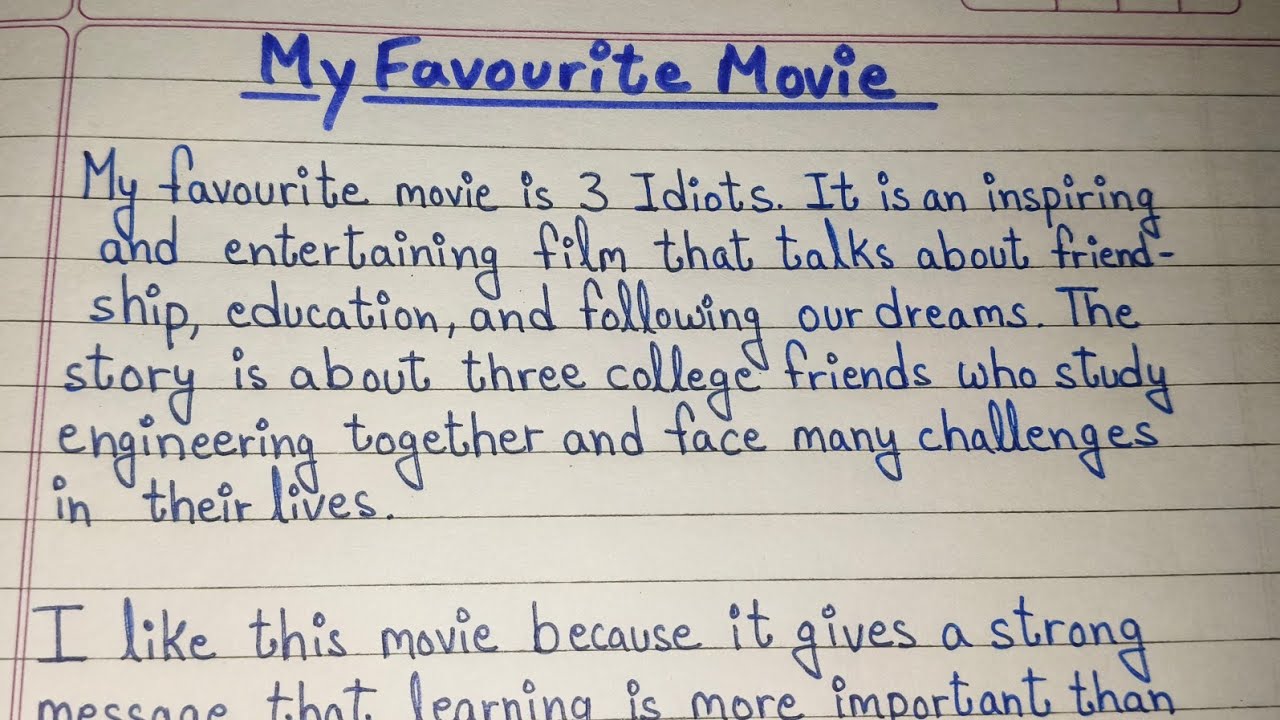 My Favourite Movie
My favourite movie is 3 Idiots. It is an inspiring
and entertaining film that talks about friend-
ship, education, and following our dreams. The
story is about three college friends who study
engineering together and face many challenges
in their lives.
I like this movie because it gives a strong
message that learning is more important than